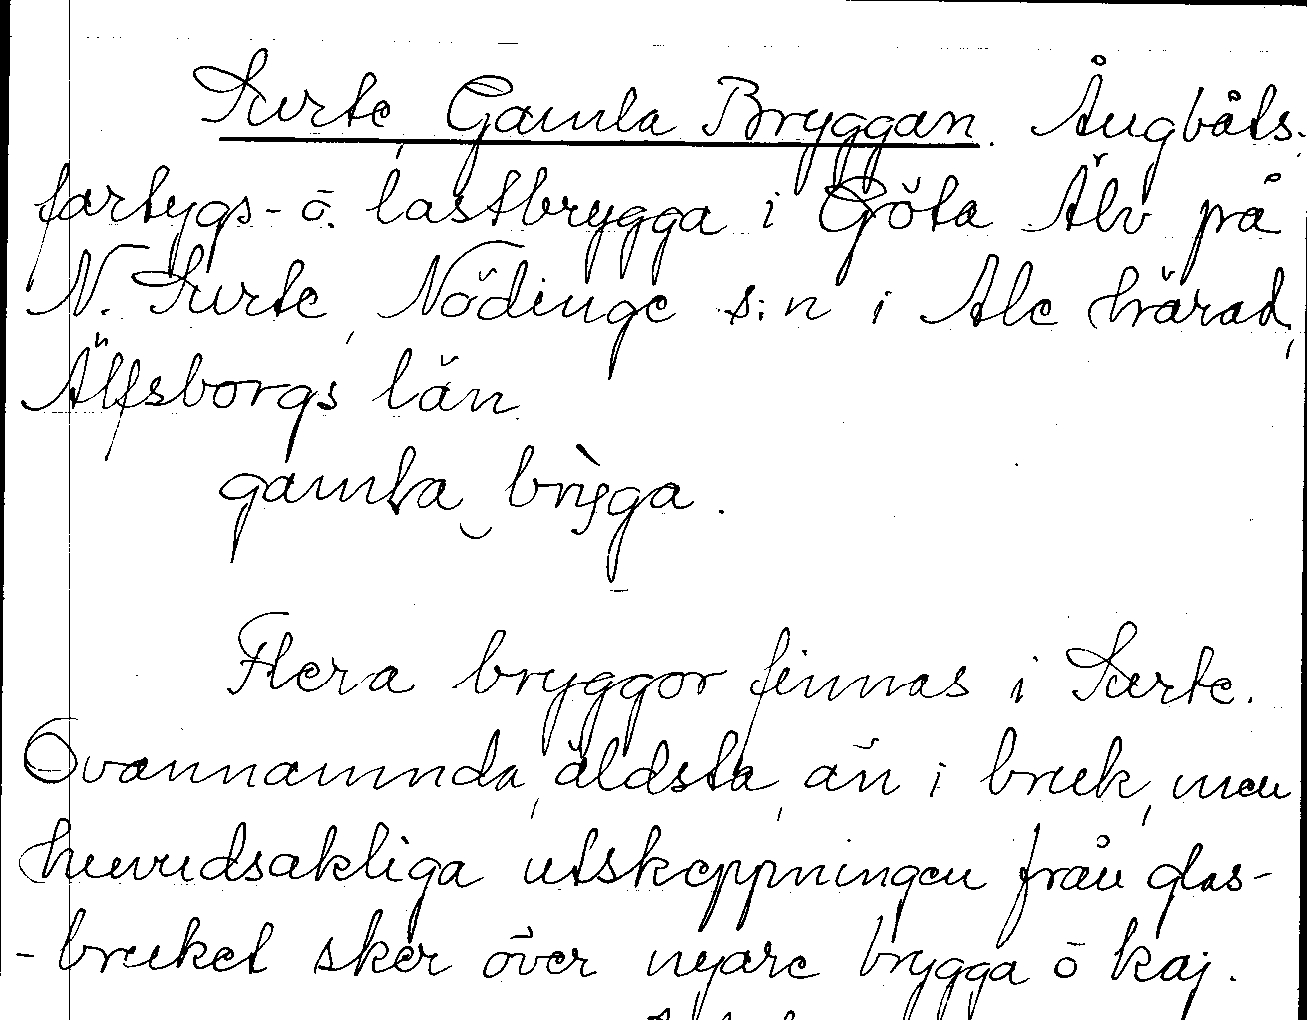 Surte, Gamla Bryggan. Ångbåts-
fartygs- o. lastbrygga i Göta Älv på
N. Surte, Nödinge s:n i Ale härad,
Älfsborgs län
gamla brỳga.
Flera bryggor finnas i Surte.
Ovannämnda, äldsta, än i bruk, men
huvudsakliga utskeppningen från glas-
-bruket sker över nyare brygga o kaj.